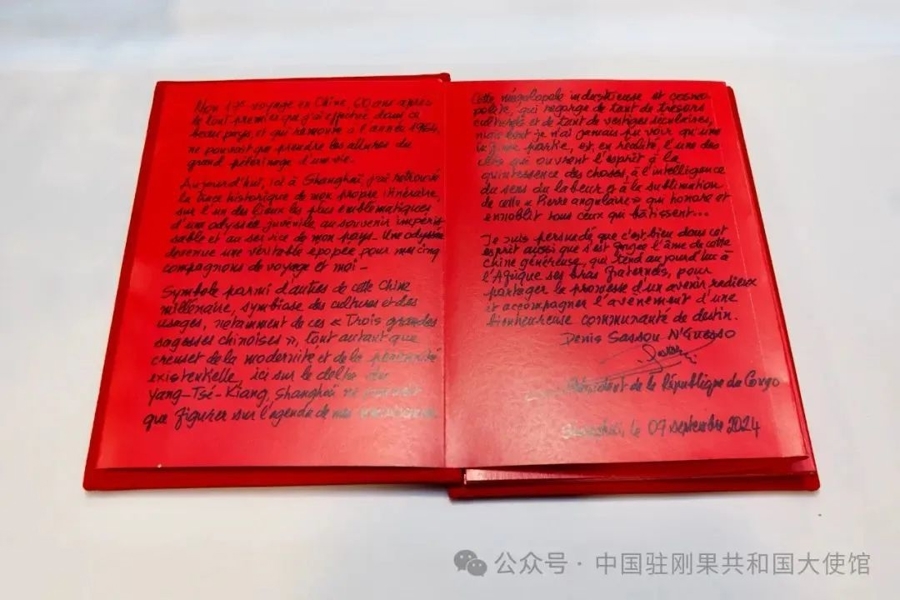 Mon 17e voyage en Chine, 60 ans après
le tout premier que j'ai effectué dans ce
beau pays, et qui remonte à l'année 1964,
ne pouvait que prendre les allures du
grand pèlerinage d'une vie.
Aujourd'hui, ici à Shanghaï, j'ai retrouvé
la trace historique de mon propre itinéraire,
sur l'un des lieux les plus emblématiques
d'une odyssée juvénile au souvenir impéris-
sable et au service de mon pays. Une odyssée
devenue une véritable épopée pour mes cinq
compagnons de voyage et moi -
Symbole parmi d'autres de cette Chine
millénaire, symbiose des cultures et des
usages, notamment de ces « Trois grandes
sagesses chinoises », tout autant que
creuset de la modernité et de la
existentielle, ici sur le delta du
Yang-Tsé-Kiang, Shanghaï ne pouvait
que figurer sur l'agenda de mes
Cette mégalopole industrieuse et cosmo-
polite, qui regorge de tant de trésors
culturels et de tant de vestiges séculaires,
dont je n'ai jamais pu voir qu'une
partie, est, en réalité, l'une des
clés qui ouvrent l'esprit à la
quintessence des choses, à l'intelligence
du sens du labeur et à la sublimation
de cette « Pierre angulaire » qui honore et
ennoblit tous ceux qui bâtissent...
Je suis persuadé que c'est bien dans cet
esprit aussi que s'est forgée l'âme de cette
Chine généreuse, qui tend aujourd'hui à
l'Afrique ses bras fraternels, pour
partager la promesse d'un avenir radieux
et accompagner l'avènement d'une
bienheureuse communauté de destin.
Denis Sassou N'Guesso
Président de la République du Congo
Shanghaï, le 07 septembre 2024
公众号 · 中国驻刚果共和国大使馆